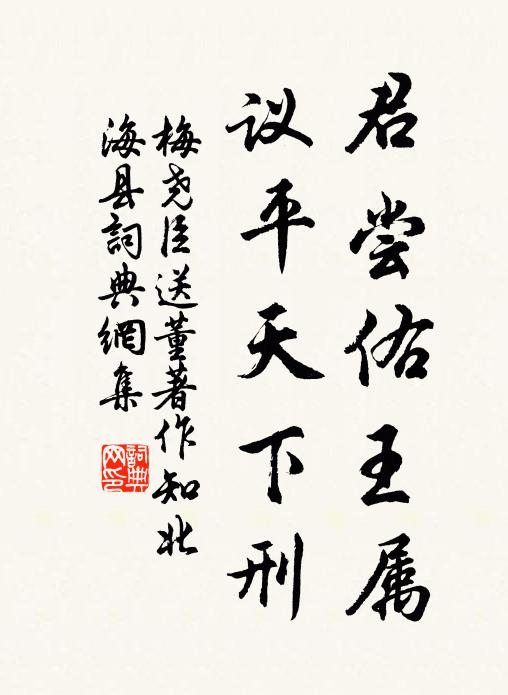 君尝佑王属
议平天下刑
梅尧臣送董著作知北
海县詞典網集
詞典
网印